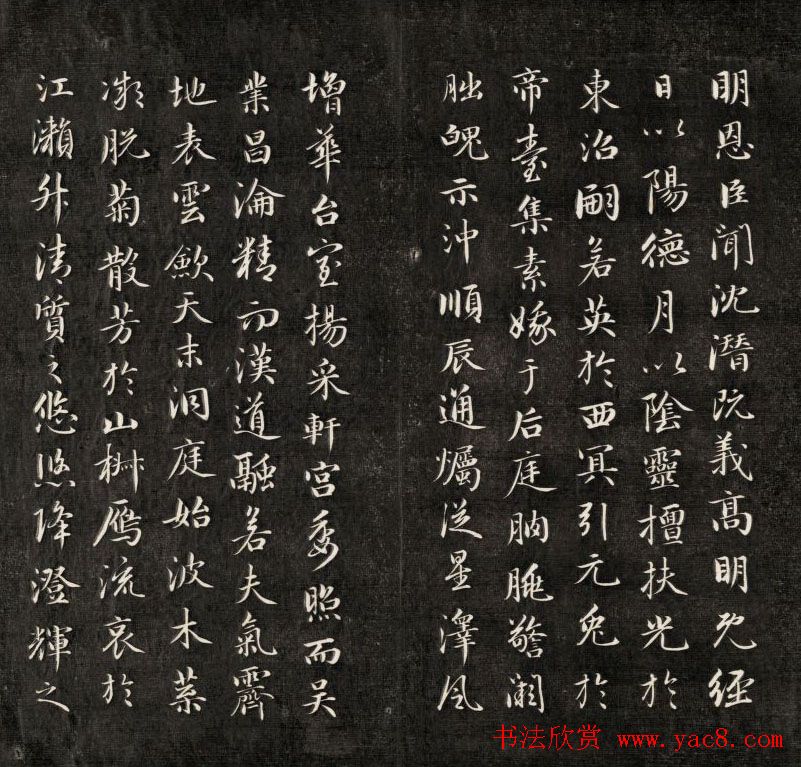 明恩臣聞沈潛既義高明既經
日以陽德月以陰靈擅扶光於
東沼嗣若英於西冥引元兔於
帝臺集素娥于后庭朒朓警闕
朏魄示沖順辰通爥從星澤風
增華台室揚采軒宮委照而吳
業昌淪精而漢道融若夫氣霽
地表雲斂天末洞庭始波木葉
微脫菊散芳於山椒鴈流哀於
江瀨升清質之悠悠降澄輝之
书法欣赏 www.yac8.com